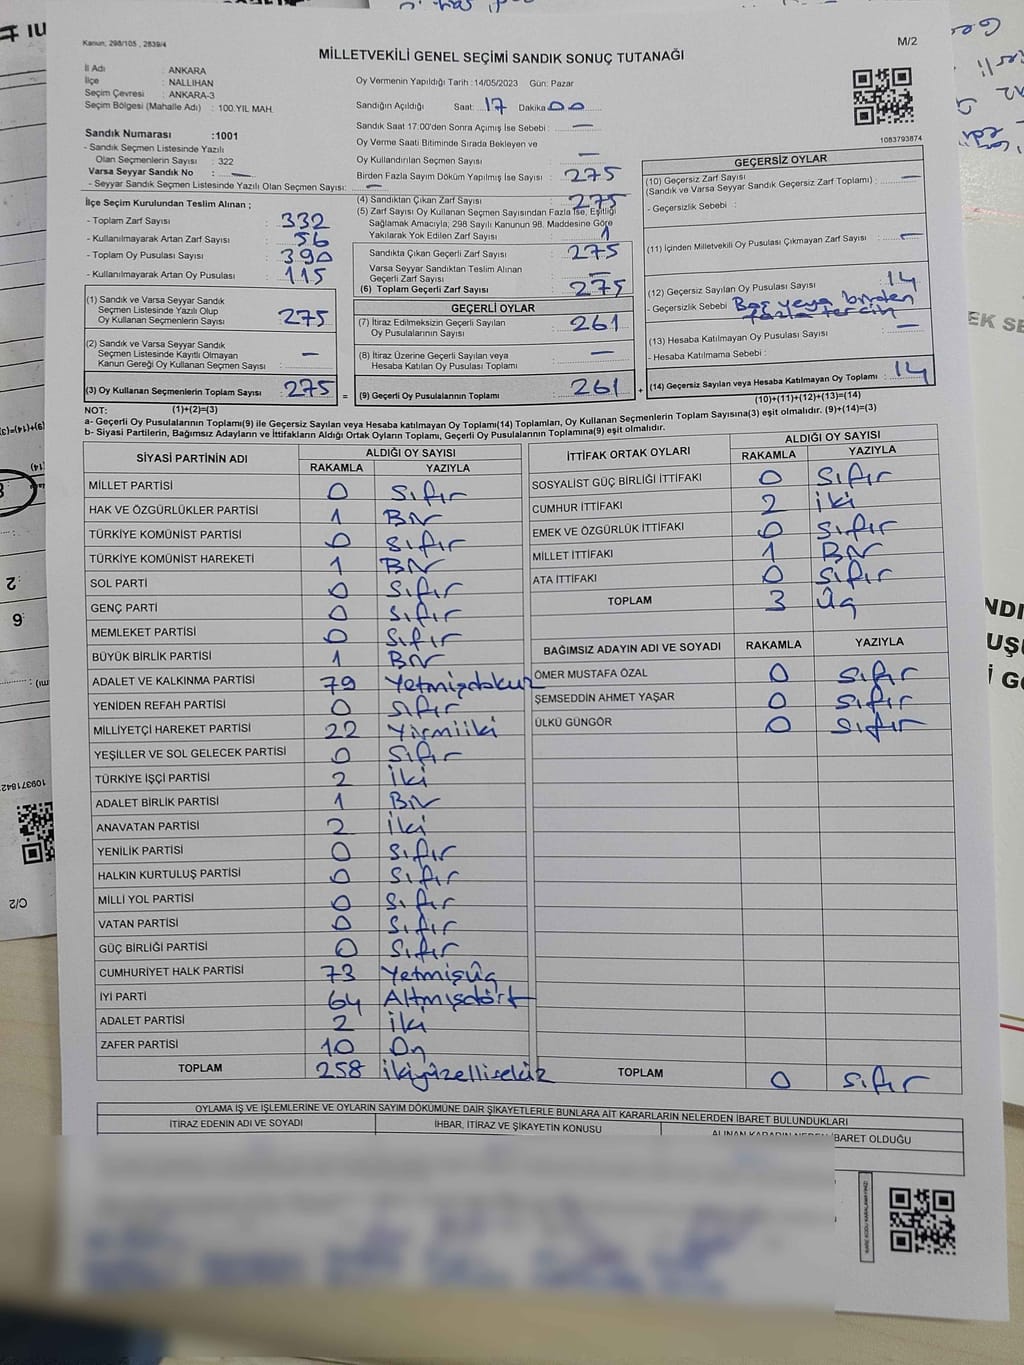 Kanun; 298/105 , 2839/4
M/2
MİLLETVEKİLİ GENEL SEÇİMİ SANDIK SONUÇ TUTANAĞI
İl Adı : ANKARA
İlçe : NALLIHAN
Seçim Çevresi : ANKARA-3
Seçim Bölgesi (Mahalle Adı) : 100.YIL MAH.
Oy Vermenin Yapıldığı Tarih :14/05/2023 Gün: Pazar
Sandığın Açıldığı Saat: 17 Dakika 00
Sandık Saat 17:00'den Sonra Açımış İse Sebebi : —
Oy Verme Saati Bitiminde Sırada Bekleyen ve
Oy Kullandırılan Seçmen Sayısı : —
Birden Fazla Sayım Döküm Yapılmış İse Sayısı : 275
1083793874
Sandık Numarası :1001
- Sandık Seçmen Listesinde Yazılı
Olan Seçmenlerin Sayısı : 322
Varsa Seyyar Sandık No : —
- Seyyar Sandık Seçmen Listesinde Yazılı Olan Seçmen Sayısı: —
İlçe Seçim Kurulundan Teslim Alınan ;
- Toplam Zarf Sayısı : 332
- Kullanılmayarak Artan Zarf Sayısı : 56
- Toplam Oy Pusulası Sayısı : 390
- Kullanılmayarak Artan Oy Pusulası : 115
(1) Sandık ve Varsa Seyyar Sandık
Seçmen Listesinde Yazılı Olup
Oy Kullanan Seçmenlerin Sayısı : 275
(2) Sandık ve Varsa Seyyar Sandık
Seçmen Listesinde Kayıtlı Olmayan
Kanun Gereği Oy Kullanan Seçmen Sayısı : —
(3) Oy Kullanan Seçmenlerin Toplam Sayısı : 275
(1)+(2)=(3)
(4) Sandıktan Çıkan Zarf Sayısı : 275
(5) Zarf Sayısı Oy Kullanan Seçmen Sayısından Fazla İse, Eşitliği
Sağlamak Amacıyla, 298 Sayılı Kanunun 98. Maddesine Göre
Yakılarak Yok Edilen Zarf Sayısı : 1
Sandıkta Çıkan Geçerli Zarf Sayısı : 275
Varsa Seyyar Sandıktan Teslim Alınan
Geçerli Zarf Sayısı : —
(6) Toplam Geçerli Zarf Sayısı : 275
GEÇERLİ OYLAR
(7) İtiraz Edilmeksizin Geçerli Sayılan
Oy Pusulalarının Sayısı : 261
(8) İtiraz Üzerine Geçerli Sayılan veya
Hesaba Katılan Oy Pusulası Toplamı : —
= (9) Geçerli Oy Pusulalarının Toplamı : 261
GEÇERSİZ OYLAR
(10) Geçersiz Zarf Sayısı
(Sandık ve Varsa Seyyar Sandık Geçersiz Zarf Toplamı) : —
- Geçersizlik Sebebi :
(11) İçinden Milletvekili Oy Pusulası Çıkmayan Zarf Sayısı : —
(12) Geçersiz Sayılan Oy Pusulası Sayısı : 14
- Geçersizlik Sebebi : Boş veya birden
fazla tercih
(13) Hesaba Katılmayan Oy Pusulası Sayısı : —
- Hesaba Katılmama Sebebi :
+ (14) Geçersiz Sayılan veya Hesaba Katılmayan Oy Toplamı : 14
(10)+(11)+(12)+(13)=(14)
NOT:
a- Geçerli Oy Pusulalarının Toplamı(9) ile Geçersiz Sayılan veya Hesaba katılmayan Oy Toplamı(14) Toplamları, Oy Kullanan Seçmenlerin Toplam Sayısına(3) eşit olmalıdır. (9)+(14)=(3)
b- Siyasi Partilerin, Bağımsız Adayların ve İttifakların Aldığı Ortak Oyların Toplamı, Geçerli Oy Pusulalarının Toplamına(9) eşit olmalıdır.
SİYASİ PARTİNİN ADI ALDIĞI OY SAYISI
RAKAMLA YAZIYLA
MİLLET PARTİSİ 0 Sıfır
HAK VE ÖZGÜRLÜKLER PARTİSİ 1 Bir
TÜRKİYE KOMÜNİST PARTİSİ 0 Sıfır
TÜRKİYE KOMÜNİST HAREKETİ 1 Bir
SOL PARTİ 0 Sıfır
GENÇ PARTİ 0 Sıfır
MEMLEKET PARTİSİ 0 Sıfır
BÜYÜK BİRLİK PARTİSİ 1 Bir
ADALET VE KALKINMA PARTİSİ 79 Yetmişdokuz
YENİDEN REFAH PARTİSİ 0 Sıfır
MİLLİYETÇİ HAREKET PARTİSİ 22 Yirmiiki
YEŞİLLER VE SOL GELECEK PARTİSİ 0 Sıfır
TÜRKİYE İŞÇİ PARTİSİ 2 İki
ADALET BİRLİK PARTİSİ 1 Bir
ANAVATAN PARTİSİ 2 İki
YENİLİK PARTİSİ 0 Sıfır
HALKIN KURTULUŞ PARTİSİ 0 Sıfır
MİLLİ YOL PARTİSİ 0 Sıfır
VATAN PARTİSİ 0 Sıfır
GÜÇ BİRLİĞİ PARTİSİ 0 Sıfır
CUMHURİYET HALK PARTİSİ 73 Yetmişüç
İYİ PARTİ 64 Altmışdört
ADALET PARTİSİ 2 İki
ZAFER PARTİSİ 10 On
TOPLAM 258 ikiyüzellisekiz
İTTİFAK ORTAK OYLARI ALDIĞI OY SAYISI
RAKAMLA YAZIYLA
SOSYALİST GÜÇ BİRLİĞİ İTTİFAKI 0 Sıfır
CUMHUR İTTİFAKI 2 İki
EMEK VE ÖZGÜRLÜK İTTİFAKI 0 Sıfır
MİLLET İTTİFAKI 1 Bir
ATA İTTİFAKI 0 Sıfır
TOPLAM 3 Üç
BAĞIMSIZ ADAYIN ADI VE SOYADI RAKAMLA YAZIYLA
ÖMER MUSTAFA ÖZAL 0 Sıfır
ŞEMSEDDİN AHMET YAŞAR 0 Sıfır
ÜLKÜ GÜNGÖR 0 Sıfır
TOPLAM 0 Sıfır
OYLAMA İŞ VE İŞLEMLERİNE VE OYLARIN SAYIM DÖKÜMÜNE DAİR ŞİKAYETLERLE BUNLARA AİT KARARLARIN NELERDEN İBARET BULUNDUKLARI
İTİRAZ EDENİN ADI VE SOYADI İHBAR, İTİRAZ VE ŞİKAYETİN KONUSU ALINAN KARARIN NEDEN İBARET OLDUĞU
C/2